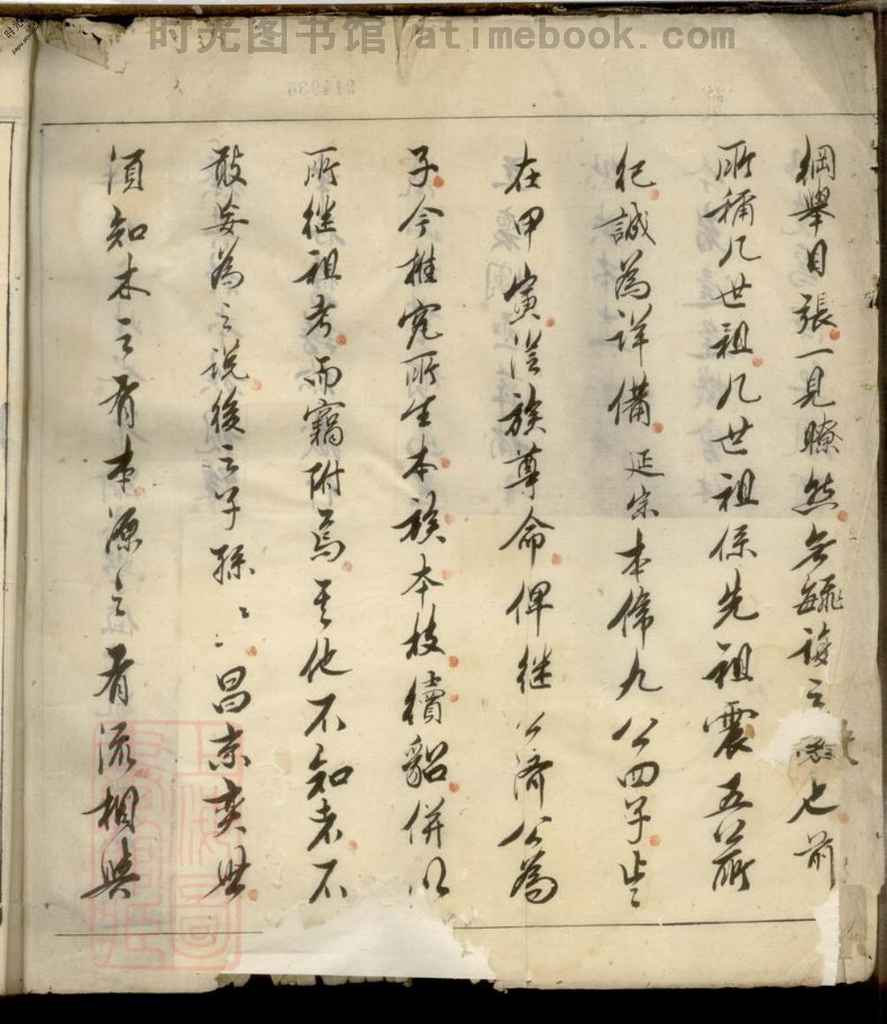 时光图书馆 atimebook.com
綱舉目張一見瞭然無 之 也前
所稱几世祖几世祖係先祖震五公所
紀誠為詳備延宗本係九公四子
在甲寅從族尊命俾継公濟公為
子今推究所生本族本枝續貂併以
所継祖考而竊附焉其他不知者不
敢妄為之說後之子孫〻昌 奕世
須知木之有本源之有流相與